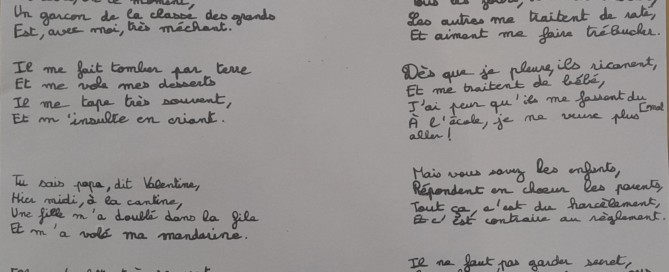 Un garçon de la classe des grands
Est, avec moi, très méchant.
Il me fait tomber par terre
Et me vole mes desserts
Il me tape très souvent,
Et m'insulte en criant.
Tu sais papa, dit Valentine,
Hier midi, à la cantine,
Une fille m'a doublé dans la file
Et m'a volé ma mandarine.
Les autres me traitent de raté,
Et aiment me faire trébucher.
Dès que je pleure, ils ricanent,
Et me traitent de bébé,
J'ai peur qu'ils me fassent du [mal
À l'école, je ne veux plus
aller !
Mais vous savez les enfants,
Répondent en choeur les parents,
Tout ça, c'est du harcèlement,
Et c'est contraire au règlement.
Il ne faut pas garder secret,